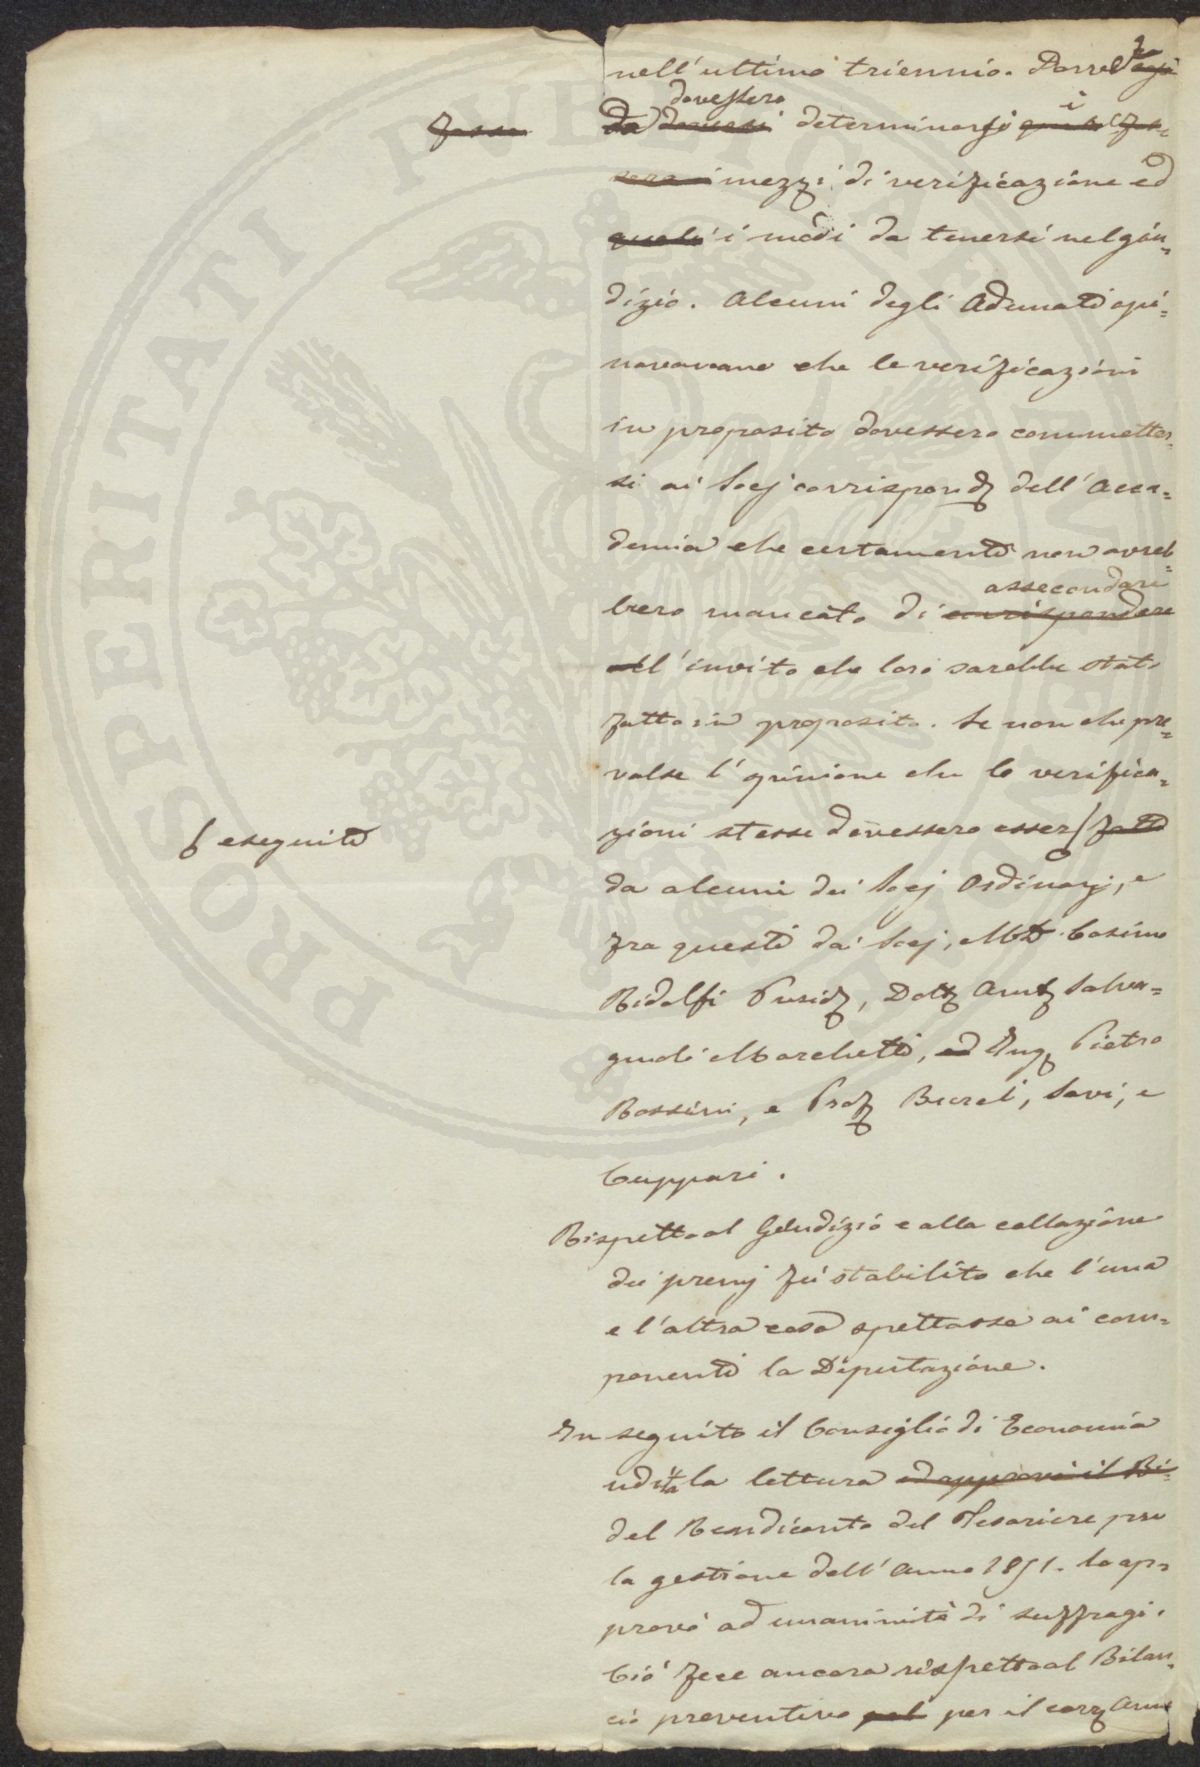 nell'ultimo triennio.
dovessero
fosse determinarsi i
mezzi di verificazione ed
quali i modi da tenersi nel giu=
dizio. Alcuni degli Adunati opi=
navano che le verificazioni
in proposito dovessero commetter=
si ai Socj corrispond. dell'Acca=
demia che certamente non avreb=
assecondare
bero mancato di corrispondere
all'invito che loro sarebbe stato
fatto in proposito. Se non che pre=
valse l'opinione che le verifica=
zioni stesse dovessero esser fatte
eseguite
da alcuni dei Socj Ordinarj, e
fra questi dai Socj, March. Cosimo
Ridolfi Presid., Dott. Ant. Salva=
gnoli Marchetti, ed Ing. Pietro
Rossini, e Prof. Buccel', Savi, e
Cuppari.
Rispetto al Giudizio e alla collazione
dei premj fu stabilito che l'una
e l'altra cosa spettasse ai com=
ponenti la Deputazione.
In seguito il Consiglio di Economia
udita la lettura ed approvò il Bi=
del Rendiconto del Tesoriere per
la gestione dell'Anno 1851. lo ap=
provò ad unanimità di suffragi.
Ciò fece ancora rispetto al Bilan=
cio preventivo pel per il corr. Anno
PROSPERITATI PUBLICAE